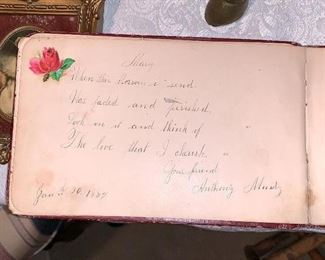 Mary
When this blossom I send
Has faded and perished,
Look on it and think of
The love that I cherish.
Your friend
Anthony
Jan 30, 1887